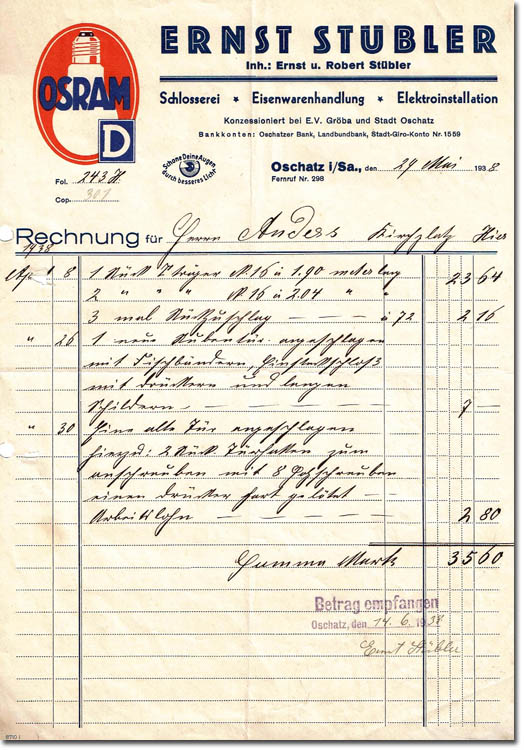 OSRAM
D
ERNST STÜBLER
Inh.: Ernst u. Robert Stübler
Schlosserei * Eisenwarenhandlung * Elektroinstallation
Konzessioniert bei E.V. Gröba und Stadt Oschatz
Bankkonten: Oschatzer Bank, Landbundbank, Stadt-Giro-Konto Nr. 1559
Schone Deine Augen
durch besseres Licht
Oschatz i/Sa., den 29 Mai 1938
Fernruf Nr. 298
Fol. 243
Cop. 301
Rechnung für Herrn Anders Kirchplatz Hier
1938
Apr 8 1 Stück T träger N. 16 a 1.90 meter lang 23 64
2 " " " N 16 a 2.04 " "
3 mal Stückzuschlag — — — a 72 2 16
" 26 1 neue Stubentür angeschlagen
mit Fischbändern, Einsteckschloß
mit Drückern und langen
Schildern — — — — 7 —
" 30 Eine alte Tür angeschlagen
hierzu: 2 Stück Türhaken zum
anschrauben mit 8 Holzschrauben
einen Drücker fest gelötet — —
Arbeitslohn — — — — 2 80
Summa Mark 35 60
Betrag empfangen
Oschatz, den 14. 6. 1938
Ernst Stübler